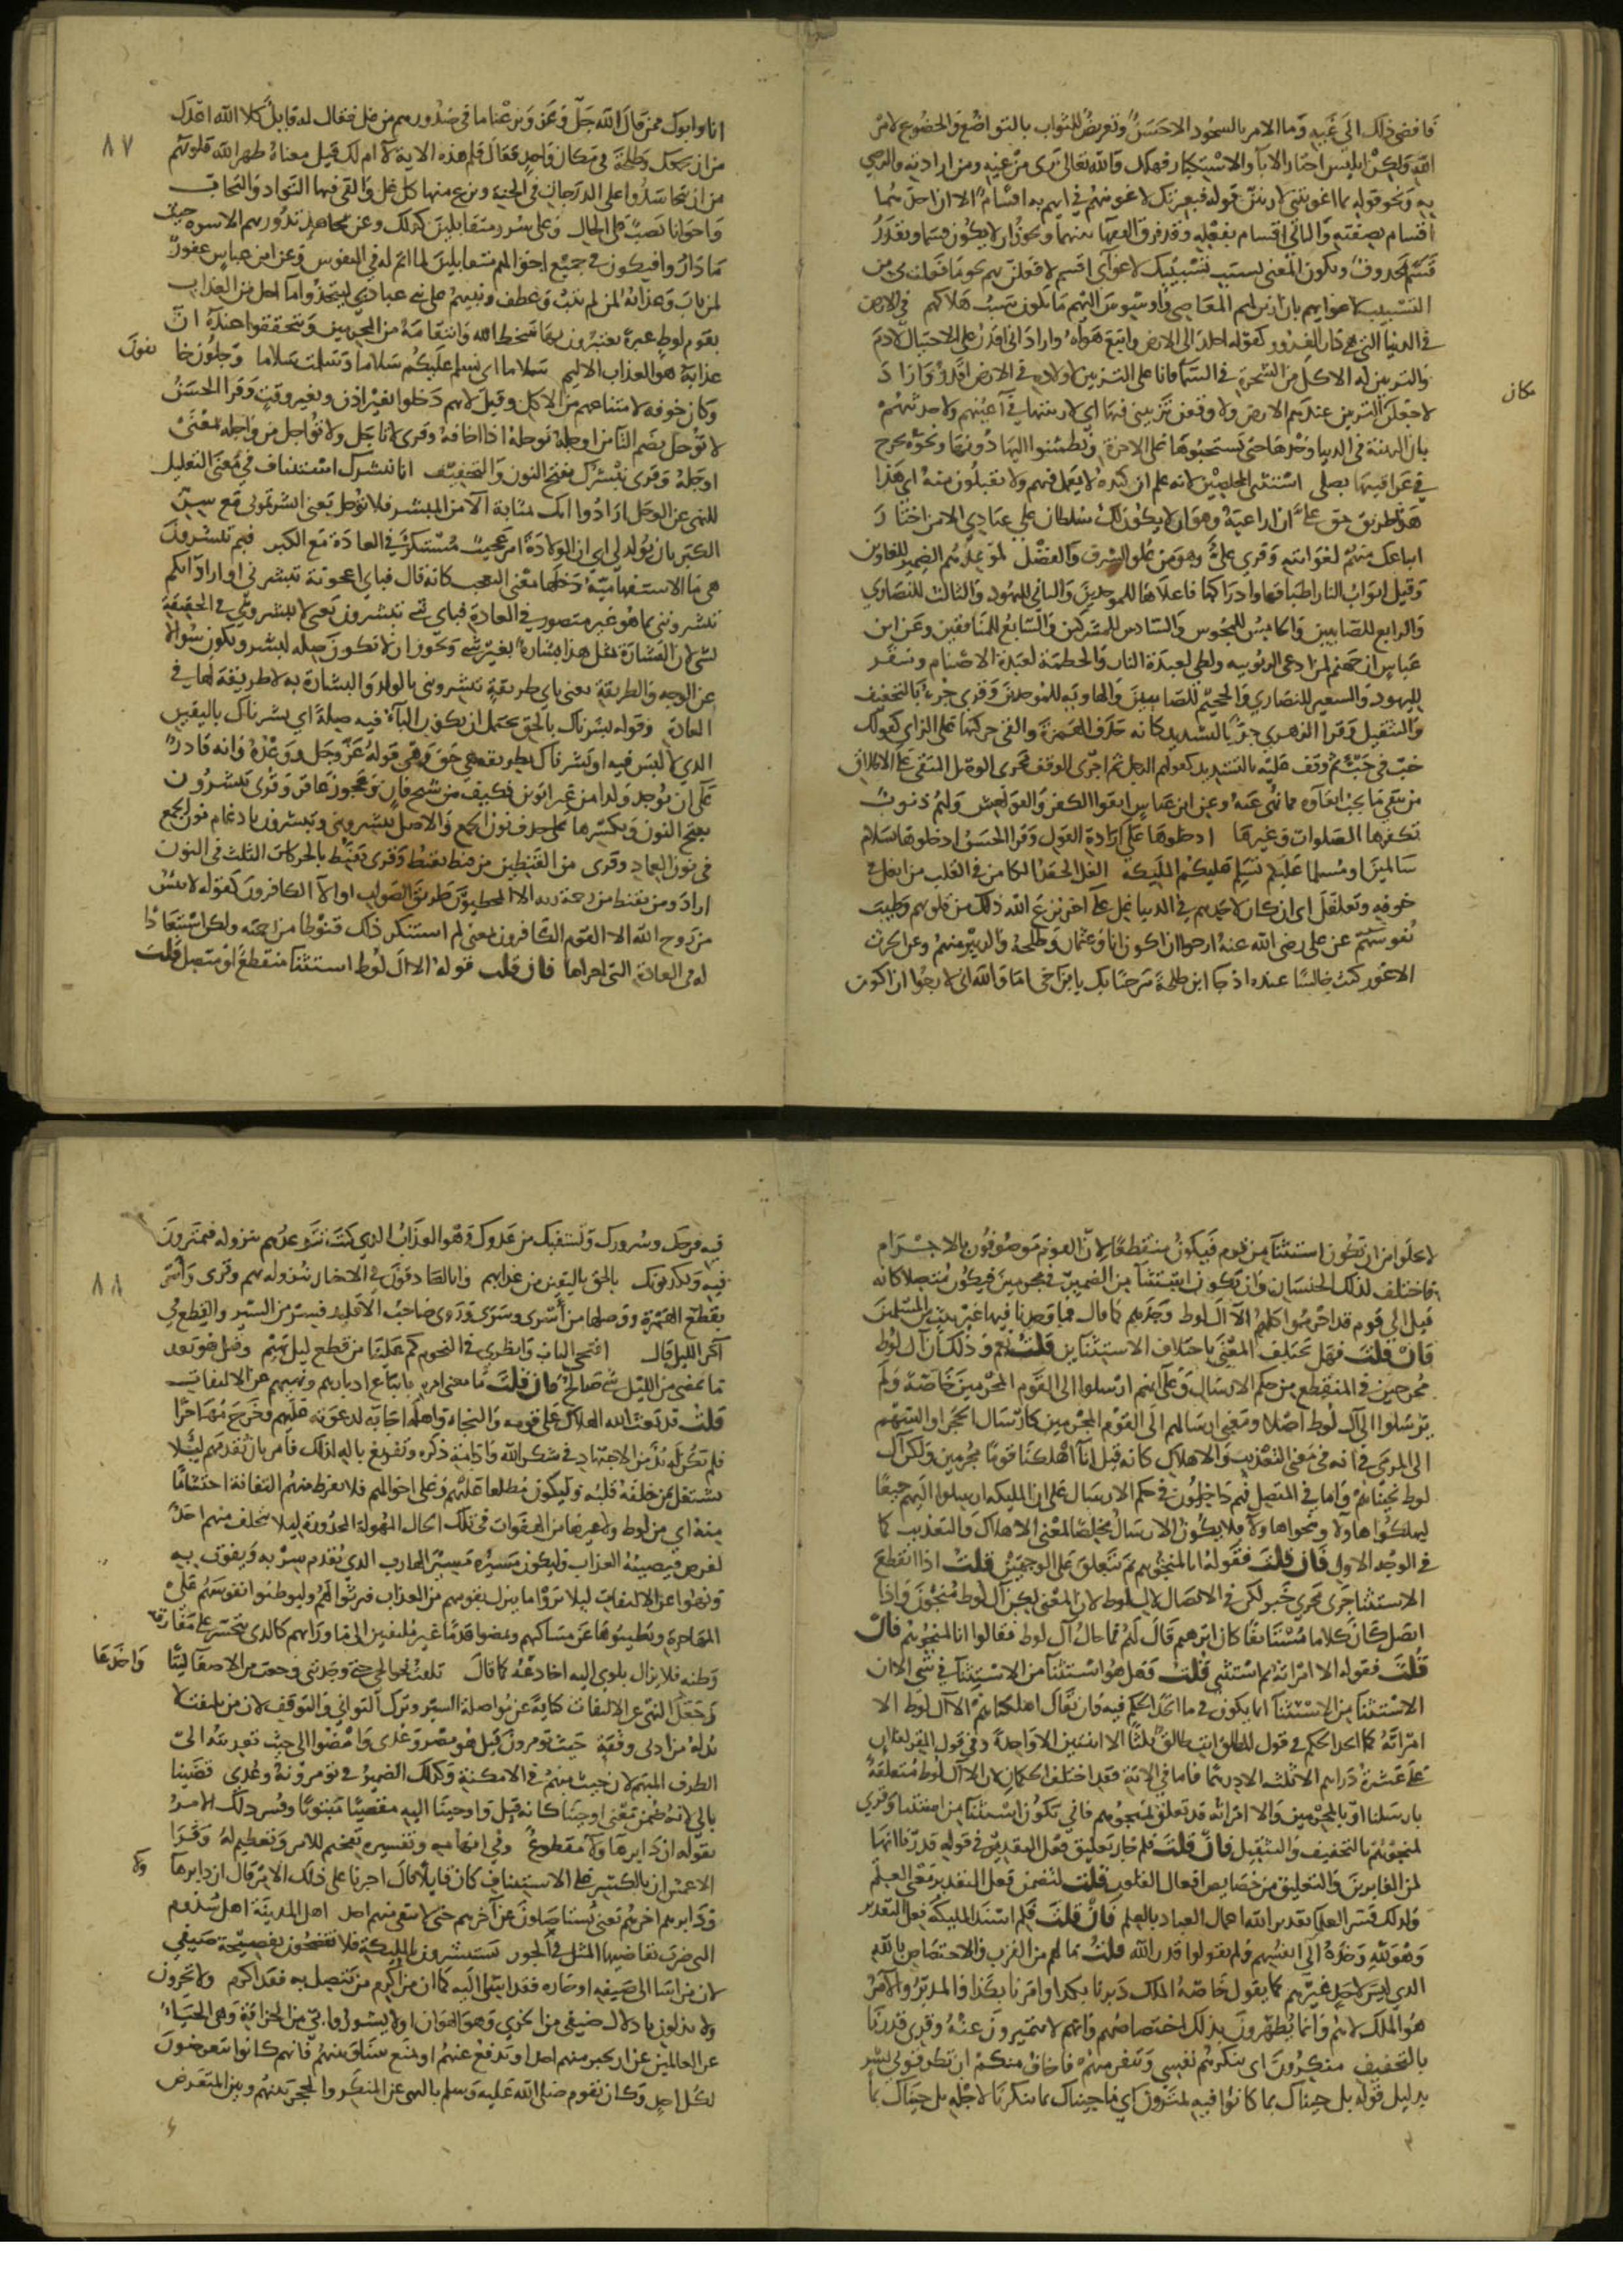 فافضى ذلك الى غيه وما الامر بالسجود الاحسن وتعريض للثواب بالتواضع والخضوع لامر
الله ولكن ابليس اختار الابآ والاستكبار فهلك والله تعالى برى من غيه ومن ارادته والرضى
به ونحو قوله بما اغويتني لازينن قوله فبعزتك لاغوينهم في انه اقسام الا ان احدهما
اقسام بصفته والثاني اقسام بفعله وقد فرق الفقهآ بينهما ويجوز ان لا يكون قسما ويقدر
قسم محذوف ويكون المعنى بسبب تسبيبك لاغوآى اقسم لافعلن بهم نحو ما فعلت بى من
التسبيب لاغوايهم بان ازين لهم المعاصى واوسوس اليهم ما يكون سبب هلاكهم في الارض
في الدنيا التى هى دار الغرور كقوله اخلد الى الارض واتبع هواه او اراد انى اقدر على الاحتيال لادم
والتزيين له الاكل من الشجرة في السمآ فانا على التزيين لاولاده في الارض اقدر او اراد
مكان
لاجعلن التزيين عندهم الارض ولاوقعن تزييني فيها اى لازيننها في اعينهم ولاحدثنهم
بان الزينة في الدنيا وحدها حتى يستحبوها على الاخرة ويطمئنوا اليها دونها ونحوه يجرح
في عراقيبها نصلى استثنى المخلصين لانه علم ان كيده لا يعمل فيهم ولا يقبلون منه اى هذا
طريق حق على ان اراعيه وهو ان لا يكون لك سلطان على عبادي الا من اختار
اتباعك منهم لغوايته وقرى على وهو من علو الشرف والفضل لموعدهم الضمير للغاوين
وقيل ابواب النار اطباقها وادراكها فاعلاها للموحدين والثاني لليهود والثالث للنصاري
والرابع للصابيين والخامس للمجوس والسادس للمشركين والسابع للمنافقين وعن ابن
عباس ان جهنم لمن ادعى الربوبيه ولظى لعبدة النار والحطمة لعبدة الاصنام وسقر
لليهود والسعير للنصاري والجحيم للصابيين والهاويه للموحدين وقرى جزء بالتخفيف
والتثقيل وقرا الزهري جز بالتشديد كانه حذف الهمزة والقى حركتها على الزاى كقولك
خب في خبء ثم وقف عليه بالتشديد كقولهم الرجل ثم اجرى الوقف مجرى الوصل المتقى على الاطلاق
من يتقى ما يجب اتقاوه مما نهى عنه وعن ابن عباس اتقوا الكفر والفواحش ولهم ذنوب
تكفرها الصلوات وغيرها ادخلوها على ارادة القول وقرا الحسن ادخلوها بسلام
سالمين او مسلما عليكم تسلم عليكم المليكه الغل الحقد الكامن في القلب من انغل في
جوفه وتغلغل اى ان كان لاحدهم في الدنيا غل على آخر نزع الله ذلك من قلوبهم وطيب
نفوسهم عن على رضى الله عنه ارجوا ان اكون انا وعثمان وطلحة والزبير منهم وعن الحرث
الاعور كنت جالسا عنده اذ جا ابن طلحة مرحبا بك يا بن اخى اما والله انى لارجوا ان اكون
٨٧
انا وابوك ممن قال الله جل وعز ونزعنا ما في صدورهم من غل فقال له قايل كلا الله اعدل
من ان يجمعك وطلحة في مكان واحد فقال فلمن هذه الاية لا ام لك وقيل معناه طهر الله قلوبهم
من ان يتحاسدوا على الدرجات في الجنة ونزع منها كل غل والقى فيها التواد والتحاب
واخوانا نصب على الحال وعلى سرر متقابلين كذلك وعن مجاهد تدور بهم الاسره حيث
ما داروا فيكون في جميع احوالهم متقابلين لما اتم له في النفوس وعن ابن عباس غفور
لمن تاب وعذابه لمن لم يتب وعطف ونبيهم على نبى عبادي ليتخذوا ما احل من العذاب
بقوم لوط عبرة يعتبرون بها سخط الله وانتقامه من المجرمين ويتحققوا عنده ان
عذابه هو العذاب الاليم سلاما اى نسلم عليكم سلاما وسلمت سلاما وجلون خا
يفون
وكان خوفه لامتناعهم من الاكل وقيل لانهم دخلوا بغير اذن وبغير وقت وقرا الحسن
لا توجل بضم التآ من اوجله يوجله اذا اخافه وقرى لا تاجل ولا تواجل من واجله بمعنى
اوجله وقرى نبشرك بفتح النون والتخفيف انا نبشرك استيناف في معنى التعليل
للنهى عن الوجل ارادوا انك بمثابة الآمن المبشر فلا توجل يعنى ابشرتموني مع مس
الكبر بان يولد لي اى ان الولادة امر عجيب مستنكر في العادة مع الكبر فبم تبشرون
هى ما الاستفهامية دخلها معنى التعجب كانه قال فباي اعجوبة تبشرني او اراد انكم
تبشرونني بما هو غير متصور في العادة فباي شى تبشرون يعنى لا تبشروني في الحقيقة
بشى لان البشارة بمثل هذا بشارة بغير شى ويجوز ان لا تكون صله لبشر ويكون سوالا
عن الوجه والطريقة يعنى باي طريقة تبشرونى بالولد والبشارة به لا طريقة لها في
العادة وقوله بشرناك بالحق يحتمل ان يكون البآ فيه صلة اي بشرناك باليقين
الذي لا لبس فيه او بشرناك بطريقه هى حق وهى قوله عز وجل ووعده وانه قادر
على ان يوجد ولدا من غير ابوين فكيف من شيخ فان وعجوز عاقر وقرى تبشرون
بفتح النون وبكسرها على حذف نون الجمع والاصل تبشرونني وتبشرون بادغام نون الجمع
في نون العماد وقرى من القنطين من قنط يقنط وقرى يقنط بالحركات الثلث في النون
اراد ومن يقنط من رحمة ربه الا المخطيون طريق الصواب او الا الكافرون كقوله لا ييئس
من روح الله الا القوم الكافرون يعنى لم استنكر ذلك قنوطا من رحمته ولكن استبعادا
له في العادة التى اجراها فان قلت قوله الا ال لوط استثنا منقطع او متصل قلت
لا يخلوا من ان يكون استثنآ من قوم فيكون منقطعا لان القوم موصوفون بالاجرام
فاختلف لذلك الجنسان وان يكون استثنآ من الضمير في مجرمين فيكون متصلا كانه
قيل الى قوم قد اجرموا كلهم الا ال لوط وحدهم كما قال فما وجدنا فيها غير بيت من المسلمين
فان قلت فهل يختلف المعنى باختلاف الاستثنآين قلت نعم وذلك ان آل لوط
مخرجين في المنقطع من حكم الارسال وعلى انهم ارسلوا الى القوم المجرمين خاصة ولم
يرسلوا الى آل لوط اصلا ومعنى ارسالهم الى القوم المجرمين كارسال الحجر او السهم
الى المرمى في انه في معنى التعذيب والاهلاك كانه قيل انا اهلكنا قوما مجرمين ولكن آل
لوط نجيناهم واما في المتصل فهم داخلون في حكم الارسال على ان المليكه ارسلوا اليهم جميعا
ليهلكوا هاولا وينجوا هاولآ فلا يكون الارسال مخلصا لمعنى الاهلاك والتعذيب كما
في الوجه الاول فان قلت فقوله انا لمنجوهم بم يتعلق على الوجهين قلت اذا انقطع
الاستثنا جرى مجرى خبر لكن في الاتصال بال لوط لان المعنى لكن آل لوط منجون واذا
اتصل كان كلاما مستانفا كان ابرهيم قال لهم فما حال آل لوط فقالوا انا لمنجوهم فان
قلت فقوله الا امراته مم استثنى قلت فهل هو استثنآ من الاستثنآ في شى الا ان
الاستثنآ من الاستثنآ انما يكون في ما اتحد الحكم فيه وان يقال اهلكناهم الا آل لوط الا
امراته كما اتحد الحكم في قول المطلق انت طالق ثلثا الا اثنتين الا واحدة وفي قول المقر لفلان
على عشرة دراهم الا ثلثه الا درهما فاما في الاية فقد اختلف الحكمان لان الا آل لوط متعلقة
بارسلنا او بالمجرمين والا امراته قد تعلق بمنجوهم فانى تكون استثنآ من استثنا وقرى
لمنجوهم بالتخفيف والتثقيل فان قلت فلم جاز تعليق فعل التقدير في قوله قدرنا انها
لمن الغابرين والتعليق من خصايص افعال القلوب قلت لتضمن فعل التقدير معنى العلم
ولذلك فسر العلما تقدير الله اعمال العباد بالعلم فان قلت فلم اسند المليكه فعل التقدير
وهو لله وحده الى انفسهم ولم يقولوا قدر الله قلت لما لهم من القرب والاختصاص بالله
الذي ليس لاحد غيرهم كما يقول خاصة الملك دبرنا بكذا وامرنا بكذا والمدبر والآمر
هو الملك لا هم وانما يظهرون بذلك اختصاصهم وانهم لا يتميزون عنه وقرى قدرنا
بالتخفيف منكرون اى تنكركم نفسي وتنفر منهم فاخاف منكم ان تطرقوني بشر
بدليل قوله بل جيناك بما كانوا فيه يمترون اي ما جيناك بما تنكرنا لاجله بل جيناك بما
٨٨
فيه فرحك وسرورك وتشفيك من عدوك وهو العذاب الذي كنت تتوعدهم بنزوله فيمترون
فيه ويكذبونك بالحق باليقين من عذابهم وانا لصادقون في الاخبار بنزوله بهم وقرى فاسر
بقطع الهمزة ووصلها من اسرى وسرى وروى صاحب الاقليد فسر من السير والقطع في
آخر الليل قال افتحي الباب وانظري في النجوم كم علينا من قطع ليل بهيم وقيل هو بعد
ما يمضى من الليل شى صالح فان قلت ما معنى امره باتباع ادبارهم ونهيهم عن الالتفات
قلت قد بعث الله الهلاك على قومه والنجاة واهله اجابة لدعوته عليهم وخرج مهاجرا
فلم يكن له بد من الاجتهاد في شكر الله وادامة ذكره وتفريغ باله لذلك فامر بان يقدمهم ليلا
يشتغل بمن خلفه قلبه وليكون مطلعا عليهم وعلى احوالهم فلا تفرط منهم التفاتة احتشاما
منه اي من لوط ولا غيرها من الهفوات في تلك الحال المهولة المحذورة ليلا يتخلف منهم احد
لغرض فيصيبه العذاب وليكون مسيره مسير الهارب الذي يقدم سربه ويفوت به
ونهوا عن الالتفات ليلا يروا ما ينزل بقومهم من العذاب فيرثوا لهم وليوطنوا نفوسهم على
المهاجرة ويطيبوها عن مساكنهم ويمضوا قدما غير ملتفتين الى ما ورآهم كالذى يتحسر على مفارقة
وطنه فلا يزال يلوى اليه اخادعه كما قال تلفت نحو الحى حتى وجدتنى وجعت من الاصغآ ليتا
واخدعا
وجعل النهى عن الالتفات كناية عن مواصلة السير وترك التواني والتوقف لان من يلتفت لا
بد له من ادنى وقفة حيث تومرون قيل هو مصر وعدى وامضوا الى حيث تعديته الى
الظرف المبهم لان حيث مبهم في الامكنة وكذلك الضمير في تومرونه وعدى قضينا
بالى لانه ضمن معنى اوحينا كانه قيل واوحينا اليه مقضيا مبتوتا وفسر ذلك الامر
بقوله ان دابر هاولآ مقطوع وفي ابهامه وتفسيره تفخيم للامر وتعظيم له وقرا
الاعمش ان بالكسر على الاستيناف كان قايلا قال اخبرنا على ذلك الامر قال ان دابر هآ
ولآ
ودابرهم اخرهم يعنى يستاصلون عن آخرهم حتى لا يبقى منهم احد اهل المدينة اهل سدوم
التى ضرب بقاضيها المثل في الجور يستبشرون بالمليكة فلا تفضحون بفضيحة ضيفي
لان من اسا الى ضيفه او جاره فقد اسآ اليه كما ان من اكرم من يتصل به فقد اكرم ولا تخزون
ولا تذلون باذلال ضيفى من الخزي وهو الهوان او لا تشوروا بي من الخزاية وهى الحيآ
عن العالمين عن ان تجير منهم احدا او تدفع عنهم او تمنع بيننا وبينهم فانهم كانوا يتعرضون
لكل احد وكان يقوم صلى الله عليه وسلم بالنهى عن المنكر والحجر بينهم وبين المتعرض